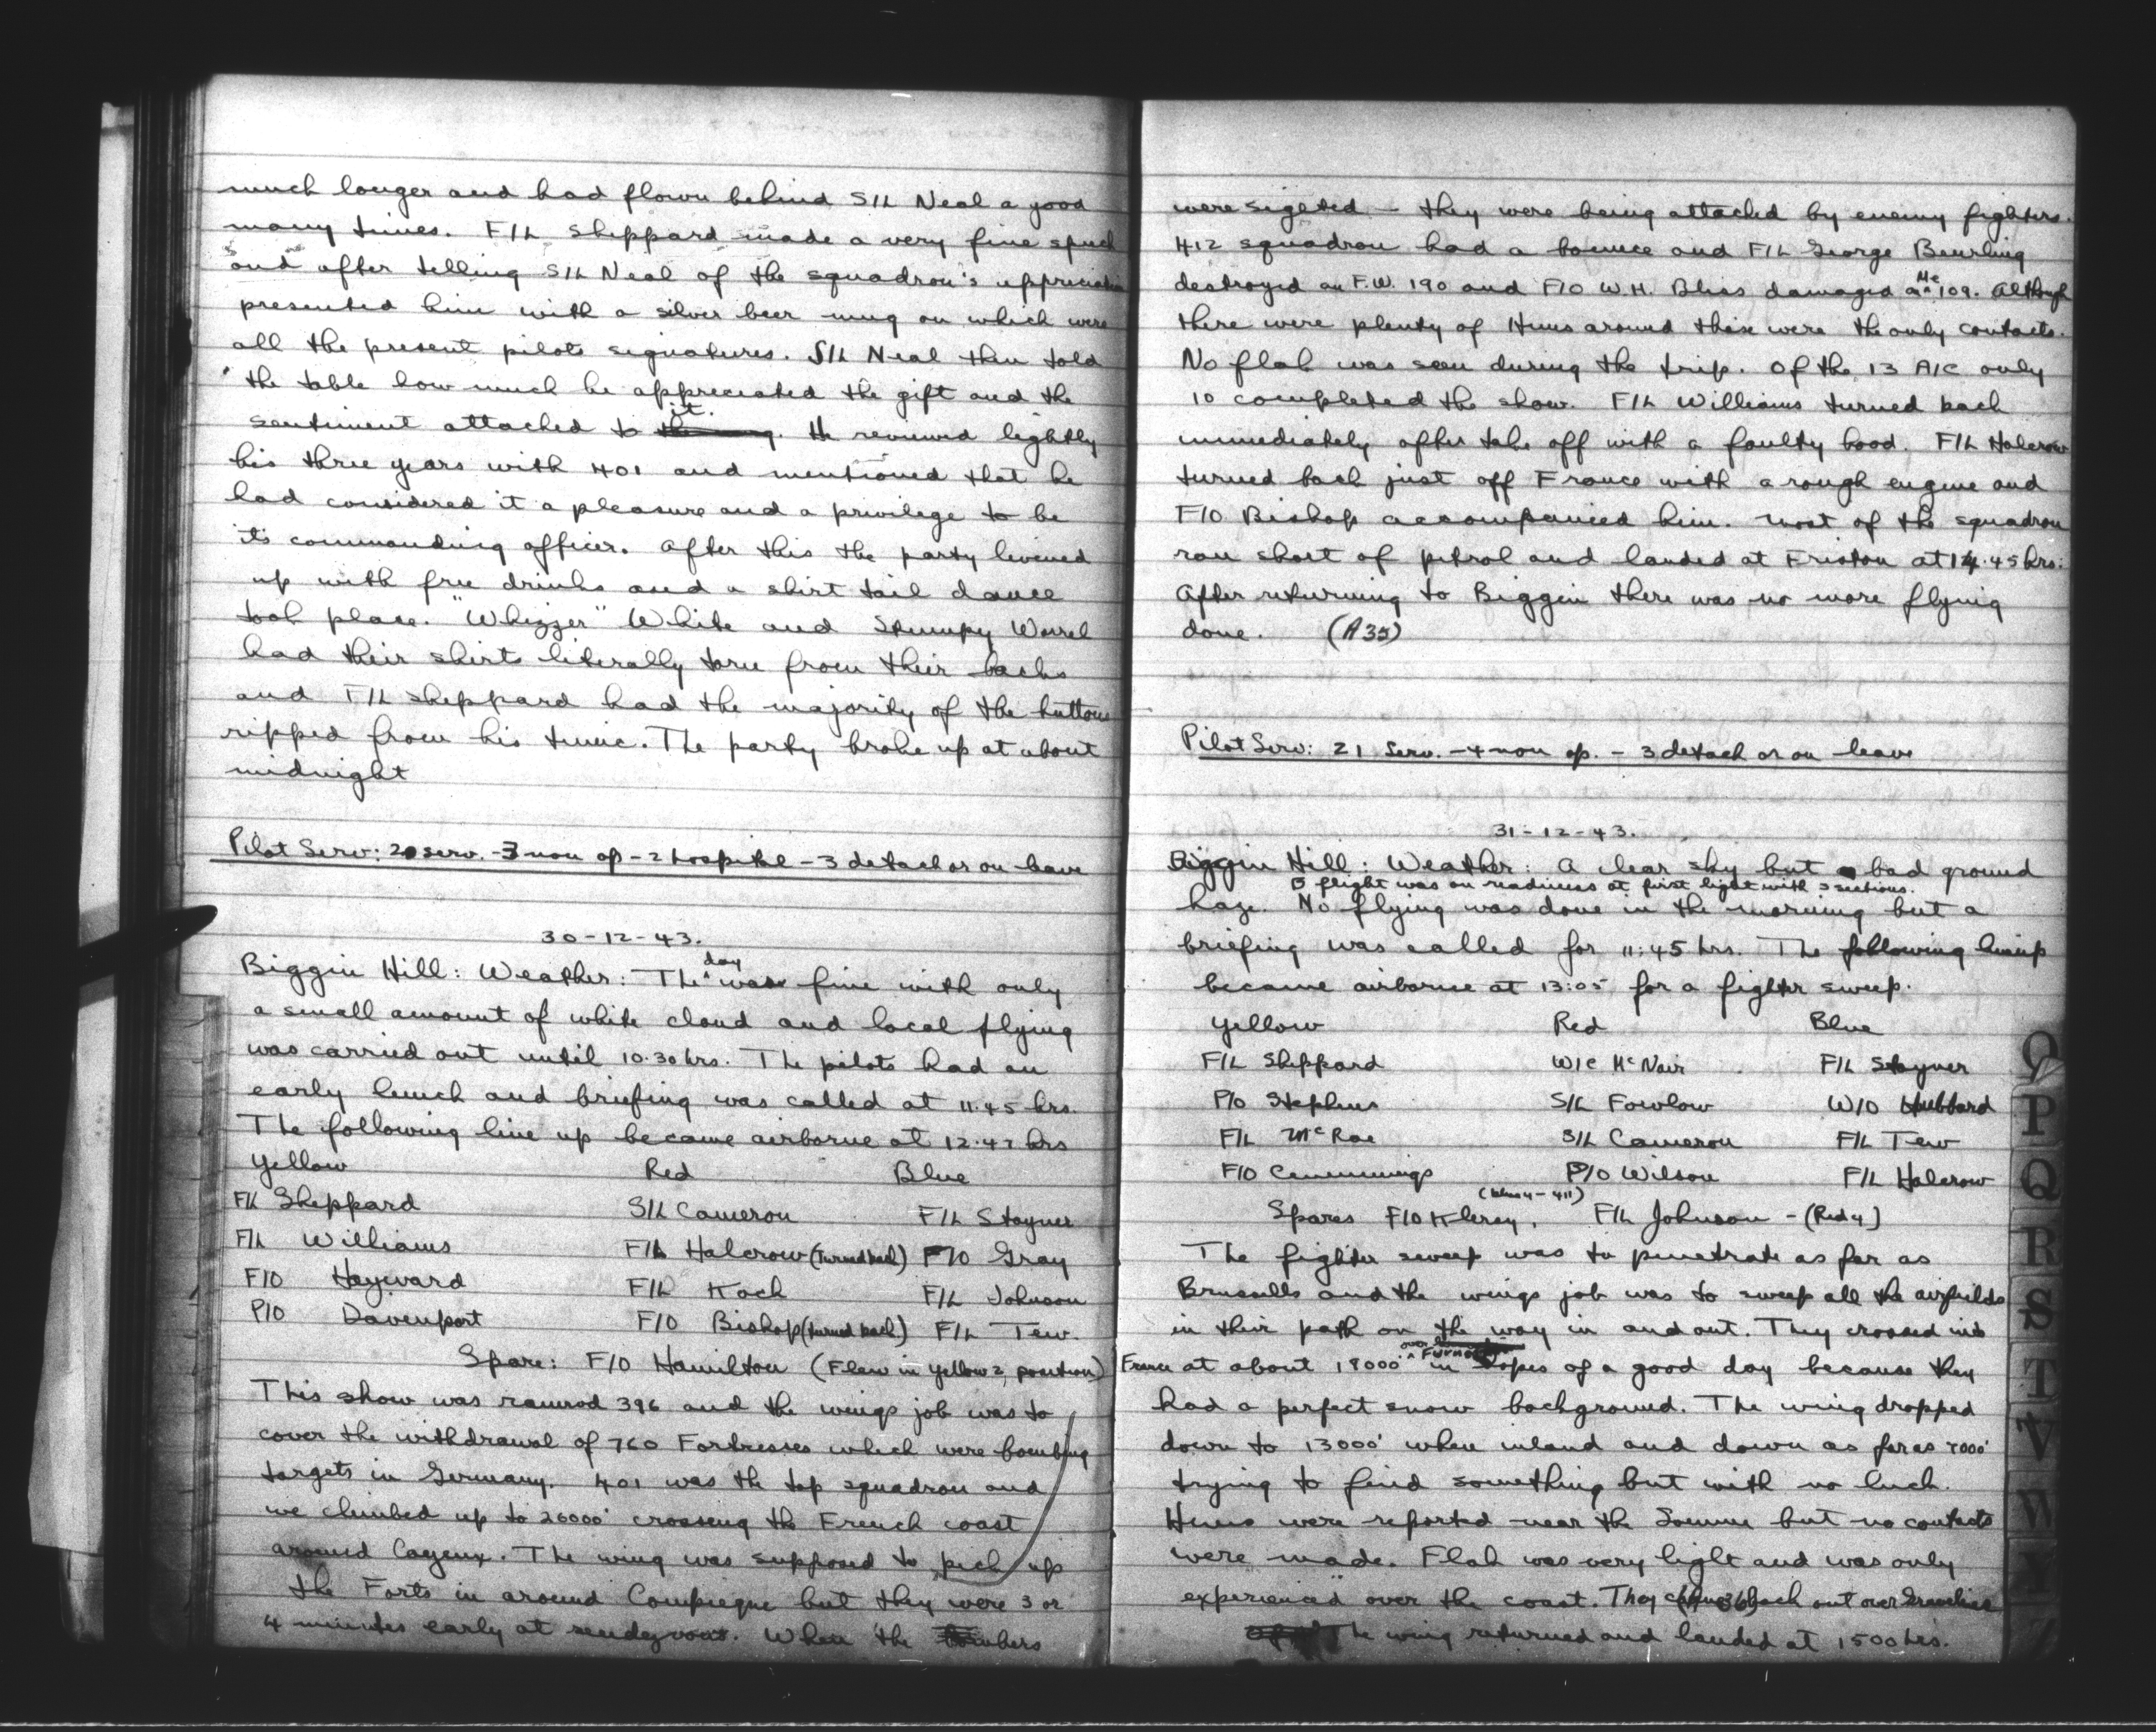 much longer and had flown behind S/L Neal a good
many times. F/L Sheppard made a very fine speech
and after telling S/L Neal of the squadron's appreciation
presented him with a silver beer mug on which were
all the present pilots signatures. S/L Neal then told
the table how much he appreciated the gift and the
sentiment attached to it. He reviewed lightly
his three years with 401 and mentioned that he
had considered it a pleasure and a privilege to be
its commanding officer. After this the party livened
up with free drinks and a shirt tail dance
took place. "Whizzer" White and Stumpy Worrel
had their shirts literally torn from their backs
and F/L Sheppard had the majority of the buttons
ripped from his tunic. The party broke up at about
midnight
Pilot Serv: 20 serv. - 3 non op - 2 hospital - 3 detach or on leave
30-12-43.
Biggin Hill: Weather: The day was fine with only
a small amount of white cloud and local flying
was carried out until 10.30 hrs. The pilots had an
early lunch and briefing was called at 11.45 hrs.
The following line up became airborne at 12.47 hrs
Yellow Red Blue
F/L Sheppard S/L Cameron F/L Stayner
F/L Williams F/L Halcrow (turned back) F/O Gray
F/O Hayward F/L Koch F/L Johnson
P/O Davenport F/O Bishop (turned back) F/L Tew.
Spare: F/O Hamilton (Flew in yellow 2, position)
This show was ramrod 396 and the wings job was to
cover the withdrawal of 760 Fortresses which were bombing
targets in Germany. 401 was the top squadron and
we climbed up to 26000' crossing the French coast
around Cayeux. The wing was supposed to pick up
the Forts in around Compiegne but they were 3 or
4 minutes early at rendezvous. When the bombers
were sighted - they were being attacked by enemy fighters.
412 squadron had a bounce and F/L George Beurling
destroyed an F.W. 190 and F/O W.H. Bliss damaged a Me 109. Although
there were plenty of Huns around these were the only contacts.
No flak was seen during the trip. Of the 13 A/C only
10 completed the show. F/L Williams turned back
immediately after take off with a faulty hood. F/L Halcrow
turned back just off France with a rough engine and
F/O Bishop accompanied him. Most of the squadron
ran short of petrol and landed at Friston at 14.45 hrs.
After returning to Biggin there was no more flying
done. (A35)
Pilot Serv: 21 Serv. - 4 non op. - 3 detach or on leave
31-12-43.
Biggin Hill: Weather: A clear sky but bad ground
B flight was on readiness at first light with 2 sections.
haze. No flying was done in the morning but a
briefing was called for 11:45 hrs. The following lineup
became airborne at 13:05 for a fighter sweep.
Yellow Red Blue
F/L Sheppard W/C McNair F/L Stayner
P/O Stephens S/L Fowlow W/O Hubbard
F/L McRae S/L Cameron F/L Tew
F/O Cummings P/O Wilson F/L Halcrow
(blue 4 - 411)
Spares F/O Klersy, F/L Johnson - (Red 4)
The fighter sweep was to penetrate as far as
Brussells and the wings job was to sweep all the airfields
in their path on the way in and out. They crossed into
France at about 18000' over Furnes in hopes of a good day because they
had a perfect snow background. The wing dropped
down to 13000' when inland and down as far as 7000'
trying to find something but with no luck.
Huns were reported near the Somme but no contacts
were made. Flak was very light and was only
experienced over the coast. They came back out over Gravelines
(A36)
The wing returned and landed at 1500 hrs.
O
P
Q
R
S
T
V
W
Y
Z